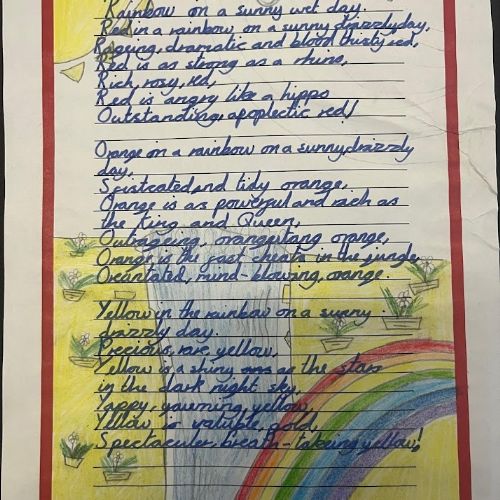 Rainbow on a sunny wet day.
Red in a rainbow on a sunny drizzly day,
Raging, dramatic and blood thirsty red,
Red is as strong as a rhino,
Rich, rosy, red,
Red is angry like a hippo
Outstanding, apoplectic red!
Orange on a rainbow on a sunny, drazzly
day,
Sfisticated, and tidy orange,
Orange is as powerful and rich as
the King and Queen,
Outrageing, orangutang orange,
Orange is the fast cheata in the jungle,
Orcantated, mind-blowing, orange.
Yellow in the rainbow on a sunny
drazzly day.
Precious, rare yellow,
Yellow is a shiny as the stars
in the dark night sky,
Yappy, yawerning, yellow,
Yellow is valuble gold,
Spectaculer, breath-takeing yellow!